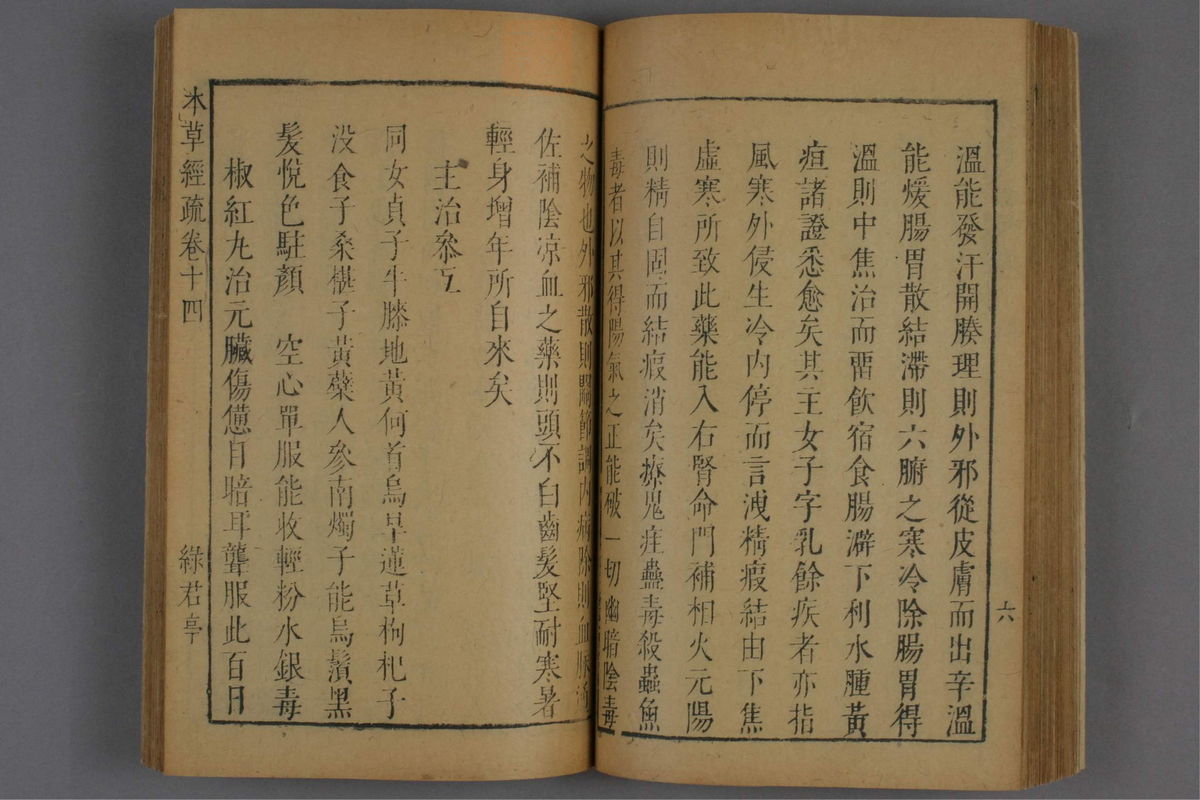 六
溫能發汗開腠理則外邪從皮膚而出辛溫
能煖腸胃散結滯則六腑之寒冷除腸胃得
溫則中焦治而畱飲宿食腸澼下利水腫黃
疸諸證悉愈矣其主女子字乳餘疾者亦指
風寒外侵生冷内停而言洩精瘕結由下焦
虛寒所致此藥能入右腎命門補相火元陽
則精自固而結瘕消矣療鬼疰蠱毒殺蟲魚
毒者以其得陽氣之正能破一切幽暗陰毒
之物也外邪散則關節調内病除則血脉通
佐補陰凉血之藥則頭不白齒髮堅耐寒暑
輕身增年所自來矣
主治叅互
同女貞子牛膝地黃何首烏旱蓮草枸杞子
没食子桑椹子黃蘗人參南燭子能烏鬚黑
髮悅色駐顏　空心單服能收輕粉水銀毒
椒紅丸治元臟傷憊目暗耳聾服此百日
本草經疏卷十四　綠君亭